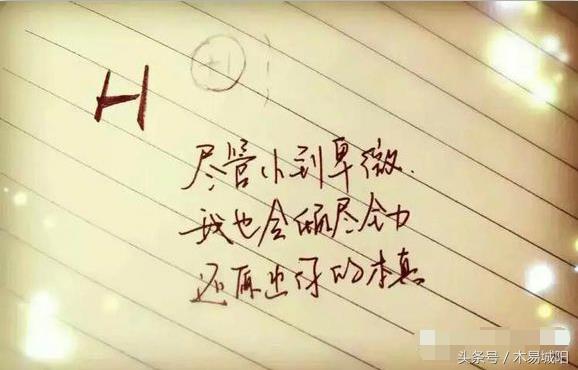 H
+1
尽管小到卑微.
我也会倾尽全力
还原出你的本真
头条号/木易城阳